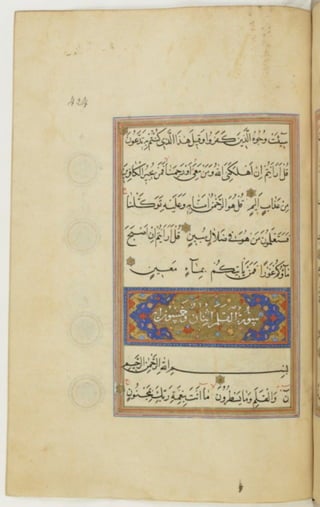 سيئت وجوه الذين كفروا وقيل هذا الذي كنتم به تدعون
قل أرأيتم إن أهلكني الله ومن معي أو رحمنا فمن يجير الكافرين
من عذاب أليم قل هو الرحمن آمنا به وعليه توكلنا
فستعلمون من هو في ضلال مبين قل أرأيتم إن أصبح
ماؤكم غورا فمن يأتيكم بماء معين
سورة القلم اثنان وخمسون
بسم الله الرحمن الرحيم
ن والقلم وما يسطرون ما أنت بنعمة ربك بمجنون